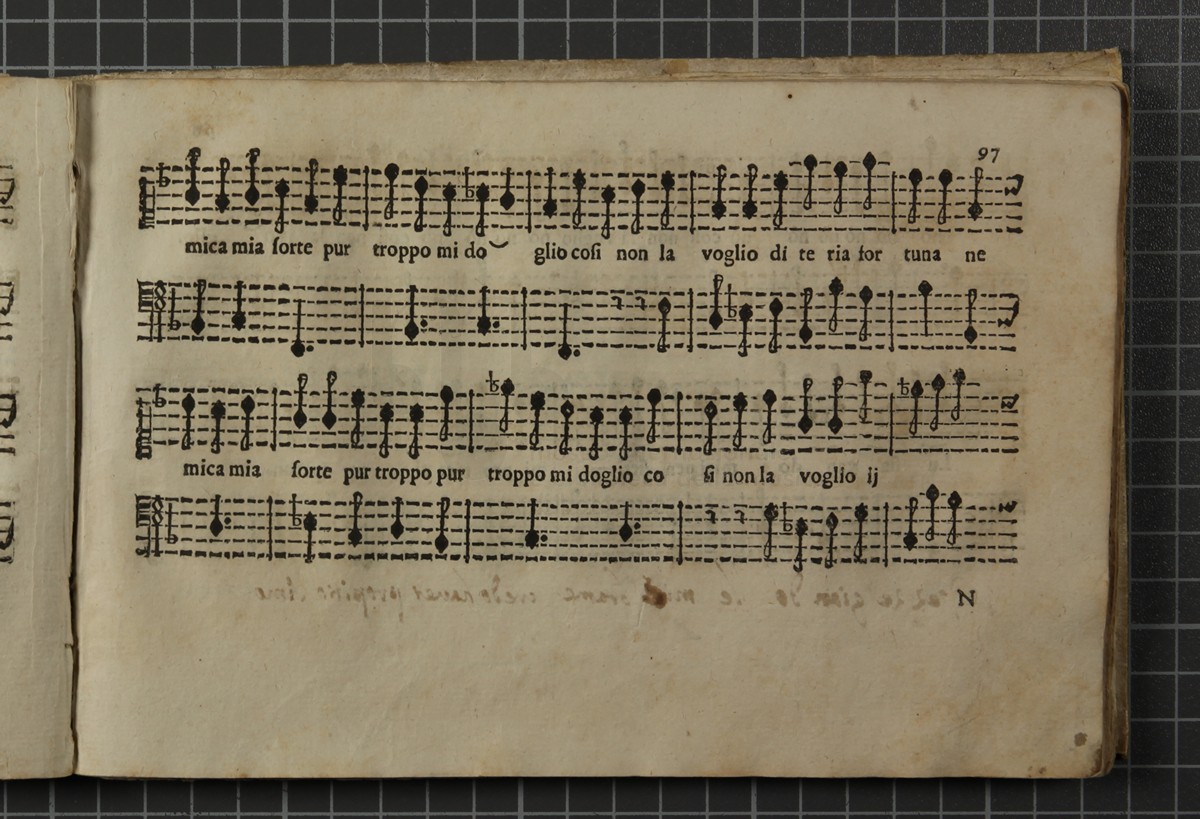 97
mica mia sorte pur troppo mi do glio cosi non la voglio di te ria for tuna ne
mica mia sorte pur troppo pur troppo mi doglio co si non la voglio ij
N